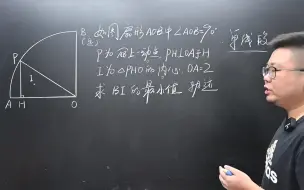 如图扇形AOB中∠AOB=90°
P为弧AB上一动点 PH⊥OA于H
I为△PHO的内心 OA=2
求BI的最小值
P
I
A
H
O
B